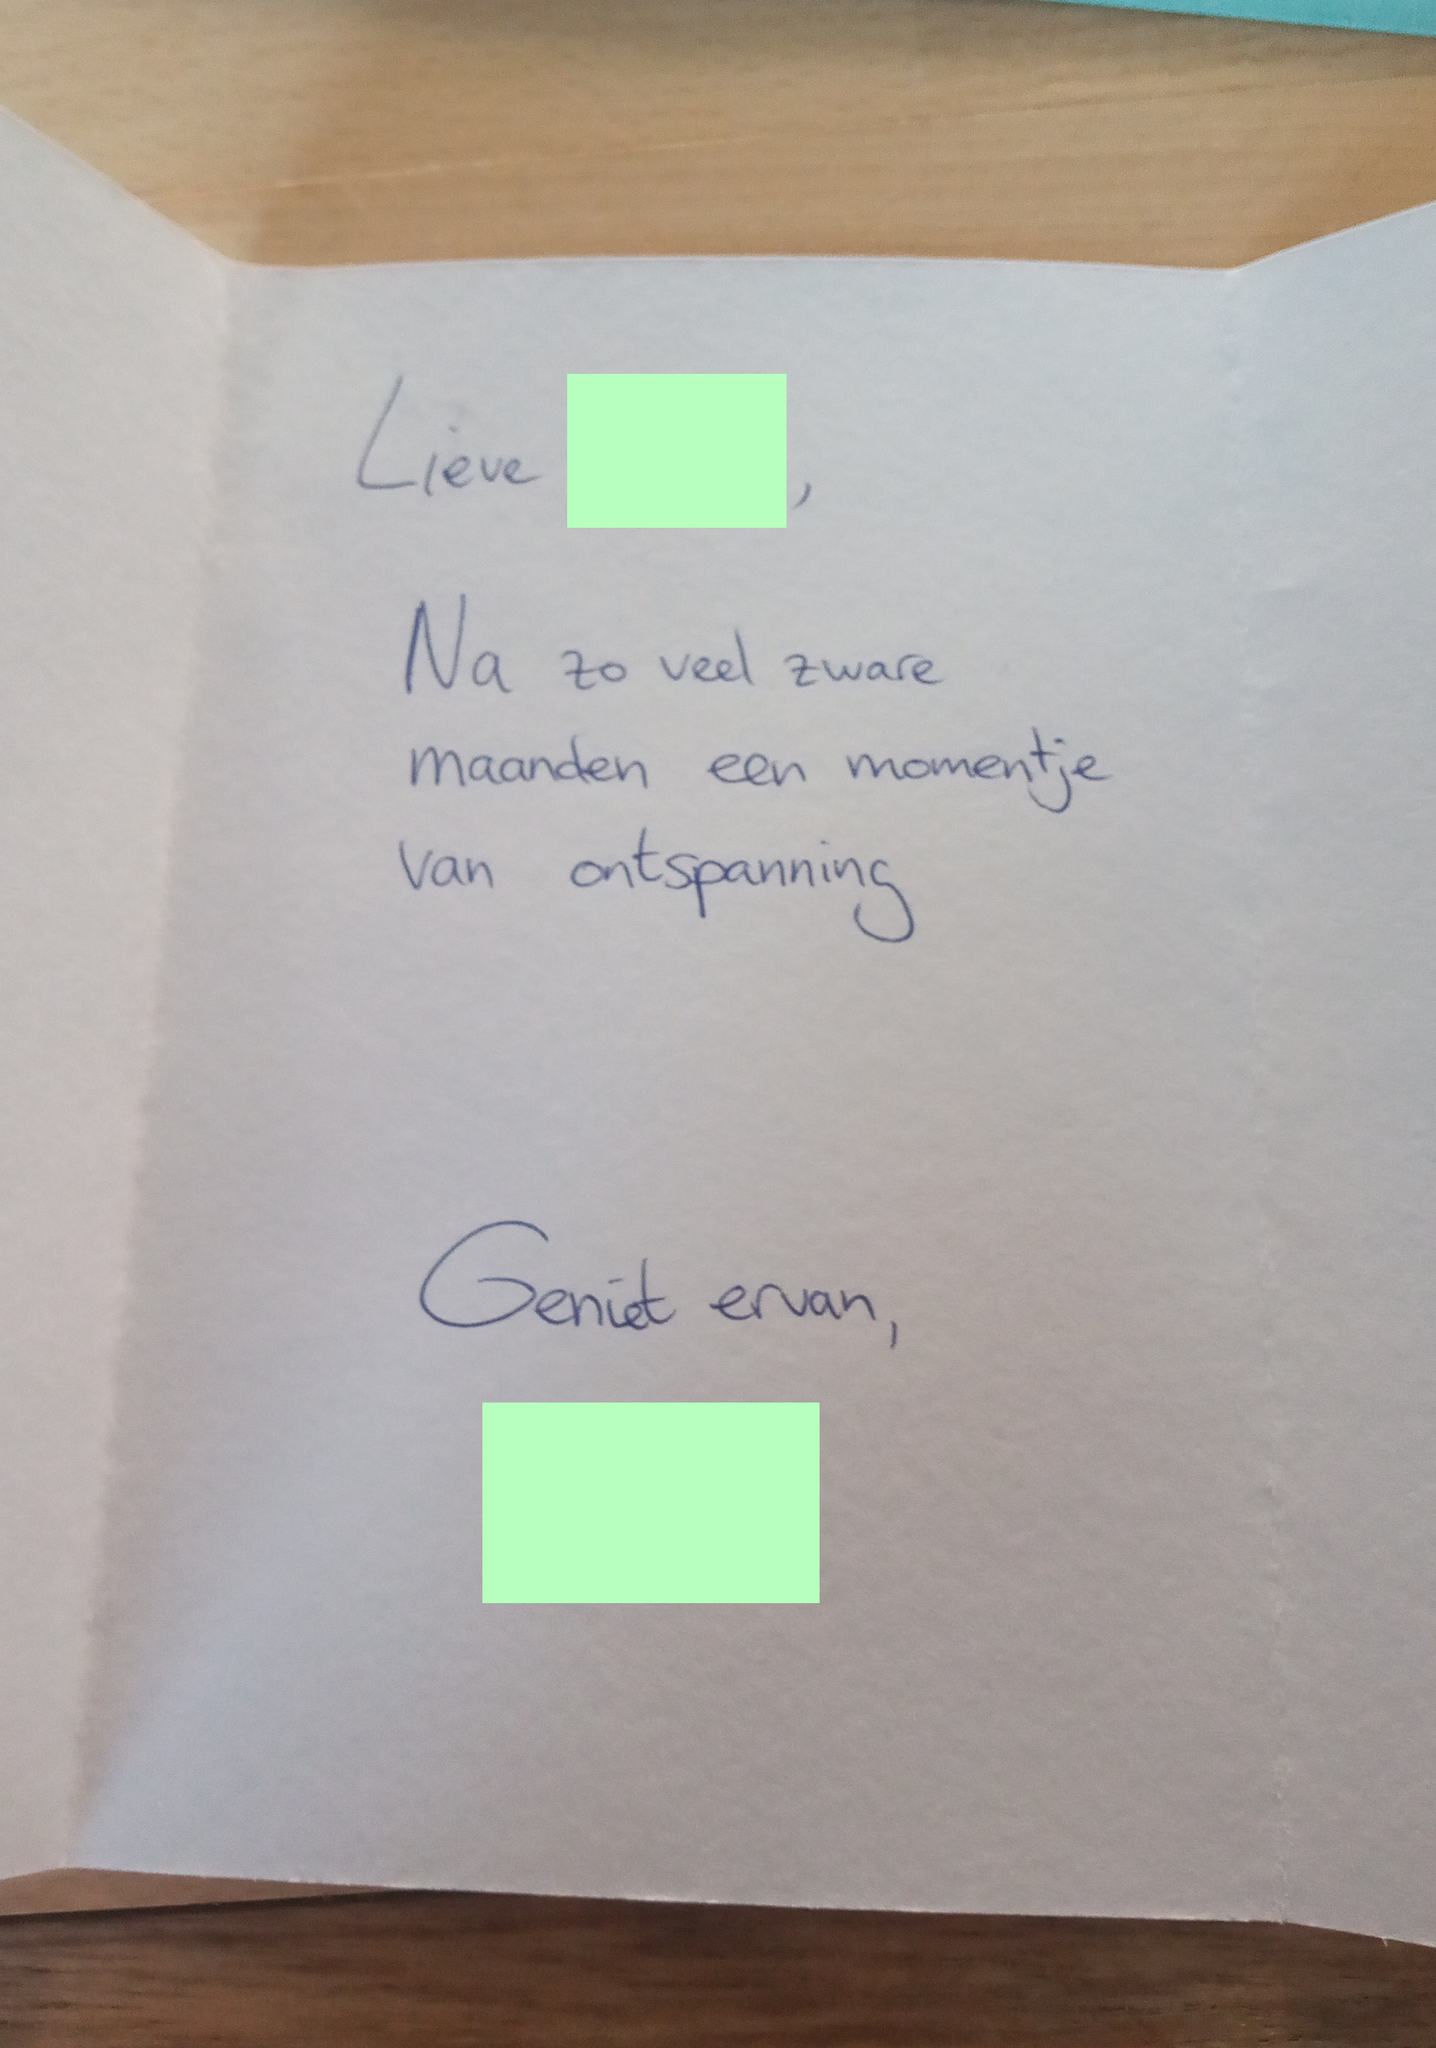 Lieve ,
Na zo veel zware
maanden een momentje
van ontspanning
Geniet ervan,